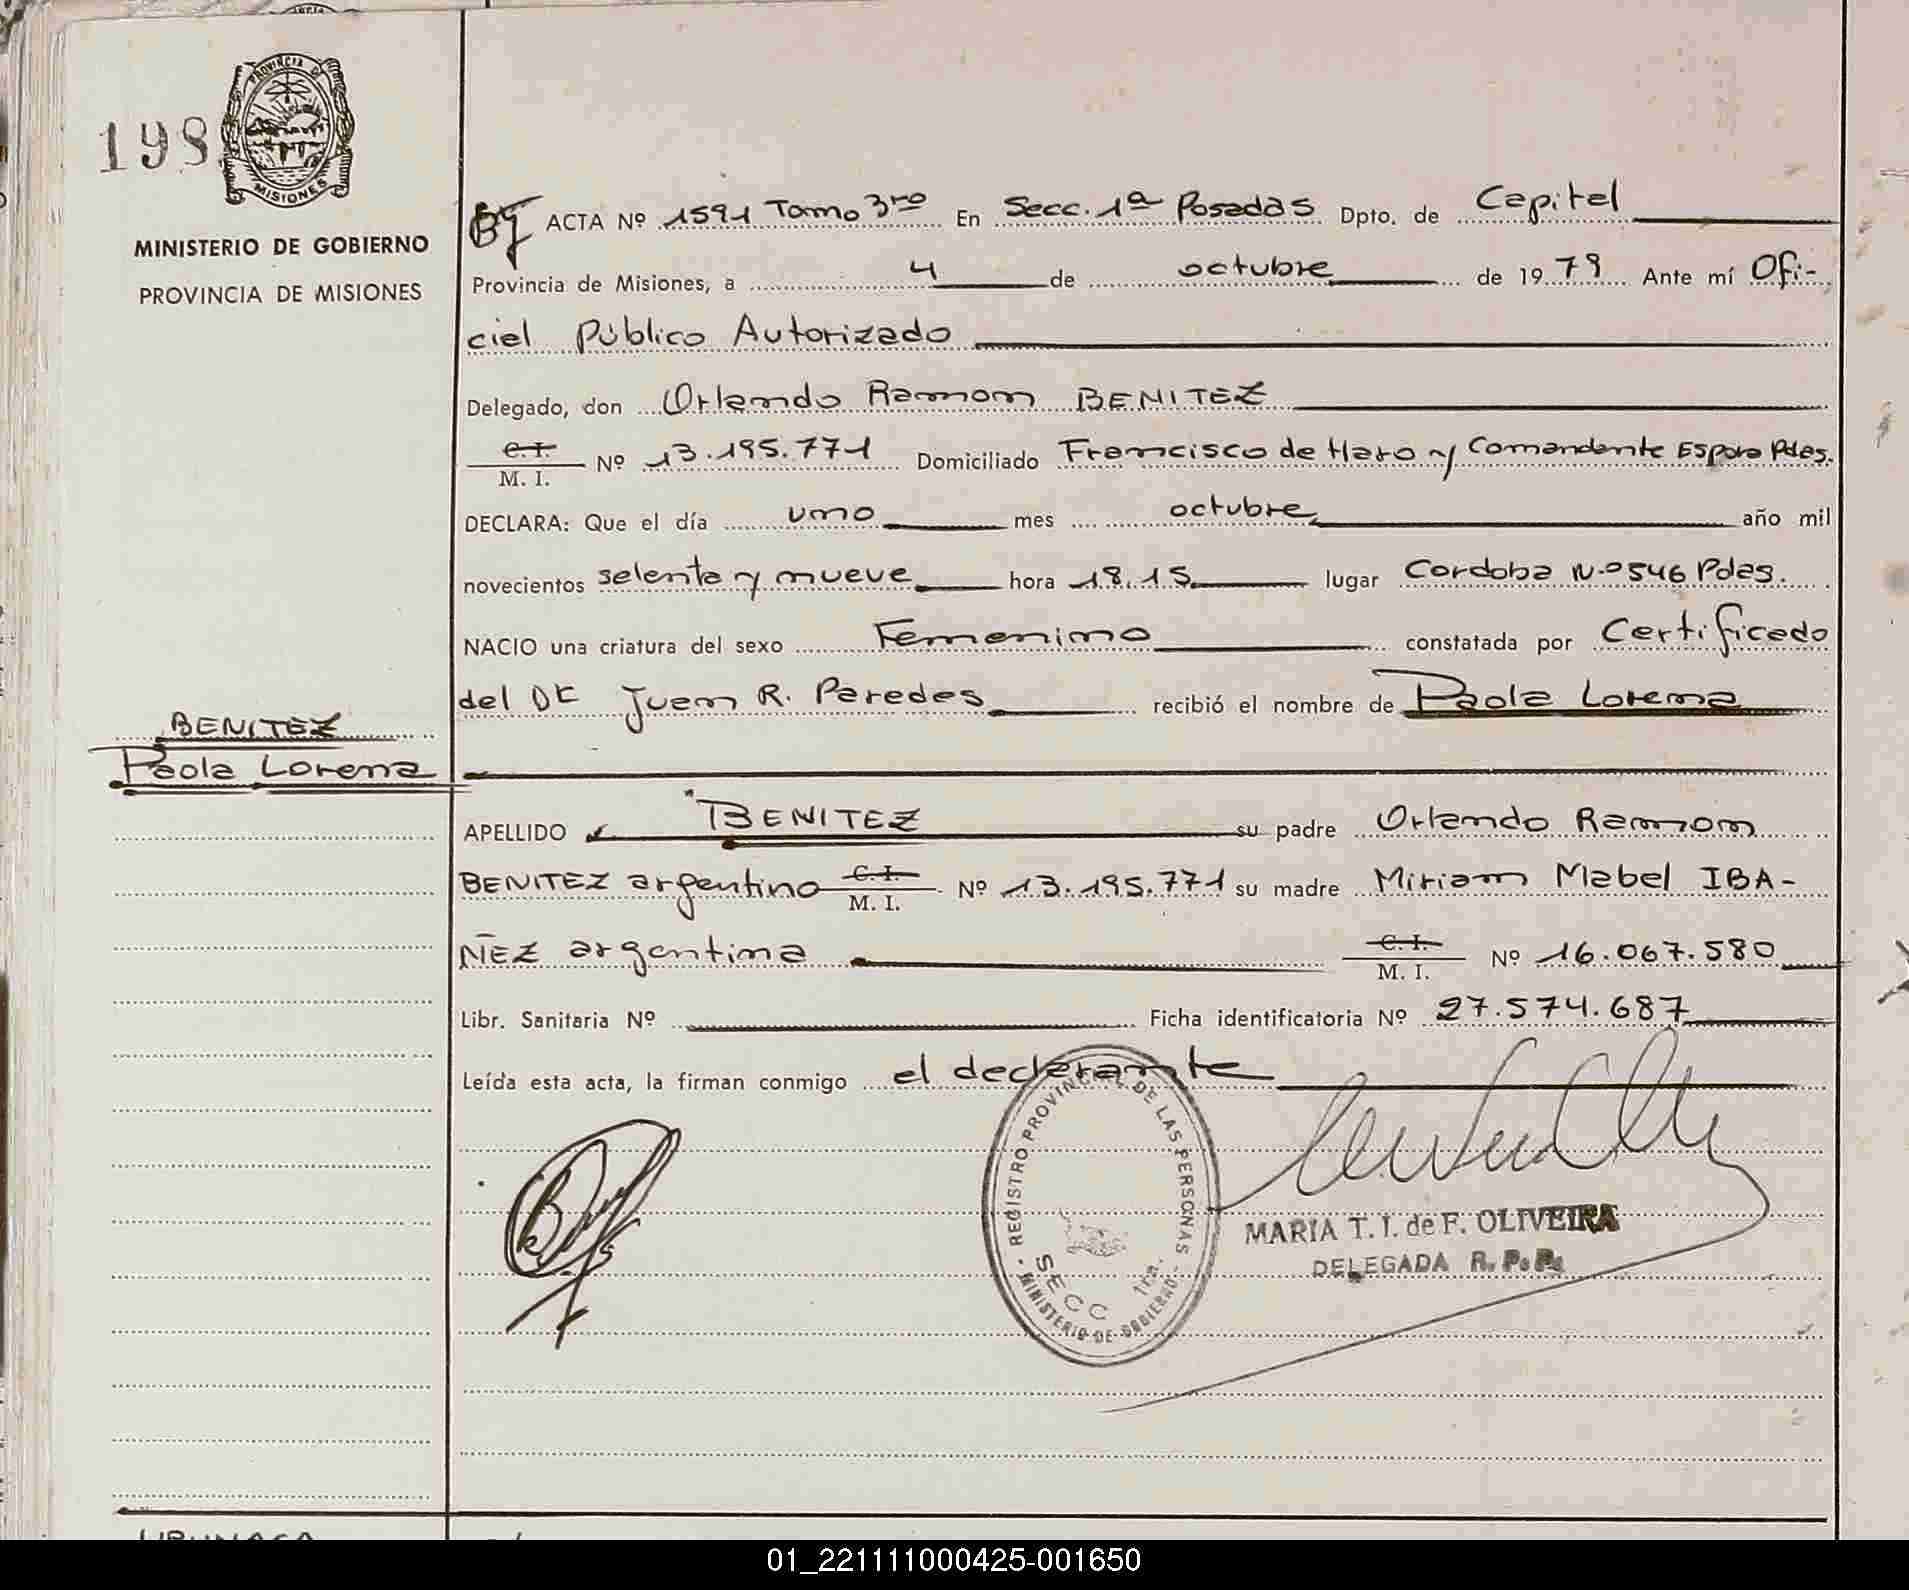 198
PROVINCIA DE
MISIONES
MINISTERIO DE GOBIERNO
PROVINCIA DE MISIONES
ACTA Nº 1591 Tomo 3ro En Secc. 1ª Posadas Dpto. de Capital
Provincia de Misiones, a 4 de octubre de 1979 Ante mí Ofi-
cial Público Autorizado
Delegado, don Orlando Ramon BENITEZ
C. I.
M. I. Nº 13.195.771 Domiciliado Francisco de Haro y Comandante Espora Pdas.
DECLARA: Que el día uno mes octubre año mil
novecientos setenta y nueve hora 18.15 lugar Cordoba Nº 546 Pdas.
NACIO una criatura del sexo Femenino constatada por Certificado
del Dr Juan R. Paredes recibió el nombre de Paola Lorena
BENITEZ
Paola Lorena
APELLIDO BENITEZ su padre Orlando Ramon
BENITEZ argentino C. I. M. I. Nº 13.195.771 su madre Miriam Mabel IBA-
ÑEZ argentina C. I. M. I. Nº 16.067.580
Libr. Sanitaria Nº Ficha identificatoria Nº 27.574.687
Leída esta acta, la firman conmigo el declarante
REGISTRO PROVINCIAL DE LAS PERSONAS
SECC 1ra.
MINISTERIO DE GOBIERNO
MARIA T. I. de F. OLIVEIRA
DELEGADA R. P. P.
01_221111000425-001650